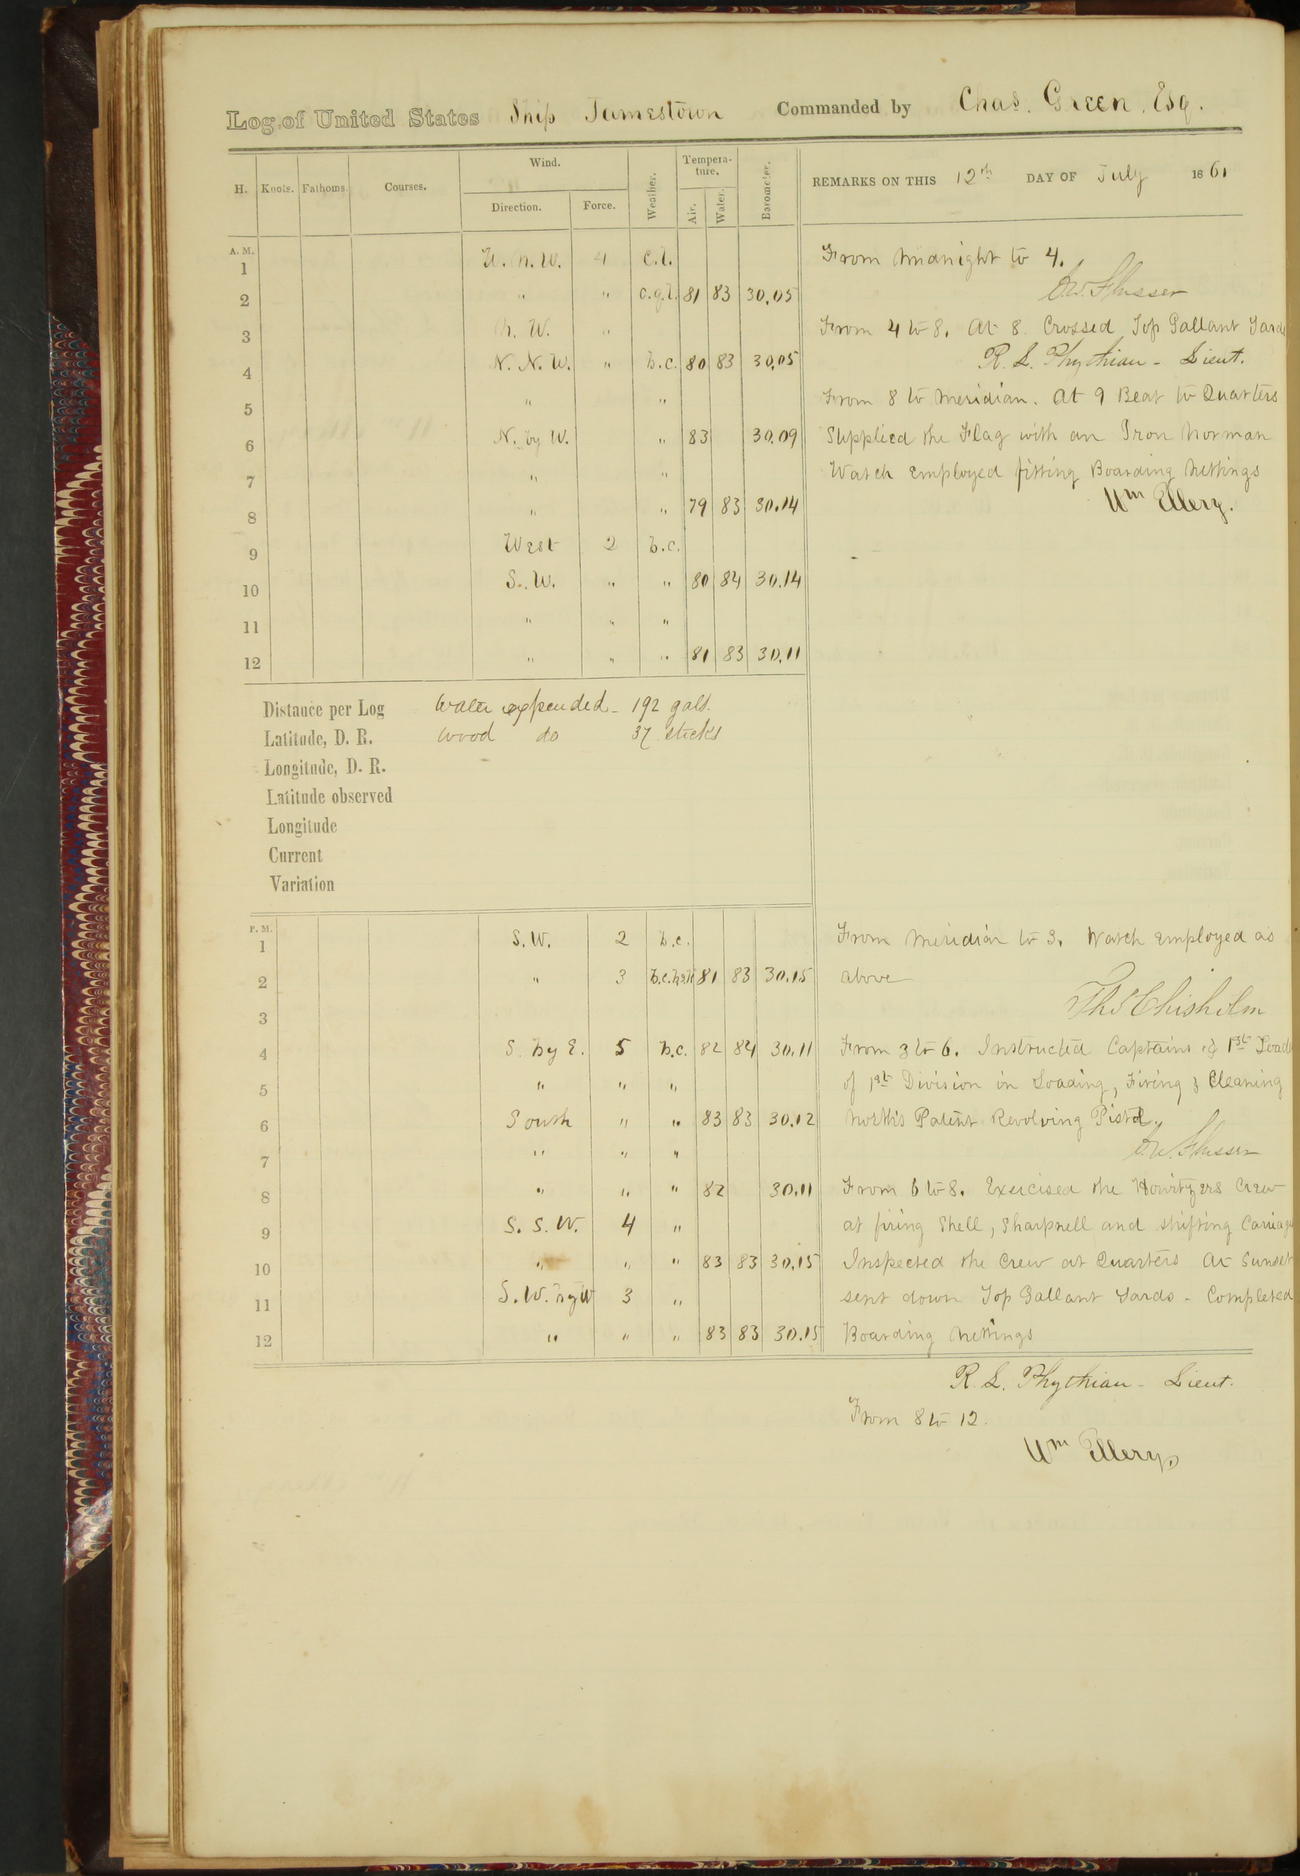 Log of United States Ship Jamestown Commanded by Chas. Green, Esq.
H. Knots. Fathoms. Courses. Wind. Direction. Force. Weather. Tempera-ture. Air. Water. Barometer. REMARKS ON THIS 12th DAY OF July 1861
A. M.
1 W. N. W. 4 c.l. From Midnight to 4.
2 " " c.q.l. 81 83 30.05
3 N. W. " From 4 to 8. At 8 Crossed Top Gallant Yards
4 N. N. W. " b.c. 80 83 30.05 R. L. Phythian - Lieut.
5 " " From 8 to Meridian. At 9 Beat to Quarters
6 N. by W. " 83 30.09 Supplied the Flag with an Iron Norman
7 " " Watch Employed fitting Boarding Nettings
8 " " 79 83 30.14 Wm Ellery.
9 West 2 b.c.
10 S. W. " " 80 84 30.14
11 " " "
12 " " " 81 83 30.11
Distance per Log Water expended - 192 gals.
Latitude, D. R. Wood do 37 sticks
Longitude, D. R.
Latitude observed
Longitude
Current
Variation
P. M.
1 S. W. 2 b.c. From Meridian to 3. Watch Employed as
2 " 3 81 83 30.15 above
3 Ths Chisholm
4 S. by E. 5 b.c. 82 84 30.11 From 3 to 6. Instructed Captains & 1st
5 " " " of 1st Division in Loading, Firing & Cleaning
6 South " " 83 83 30.12 North's Patent Revolving Pistol.
7 " " "
8 " " " 82 30.11 From 6 to 8. Exercised the Howitzers Crew
9 S. S. W. 4 " at firing Shell, Sharpnell and shifting Carriage
10 " " " 83 83 30.15 Inspected the Crew at Quarters At Sunset
11 S. W. by W 3 " sent down Top Gallant Yards - Completed
12 " " " 83 83 30.15 Boarding Nettings
R. L. Phythian - Lieut.
From 8 to 12.
Wm Ellery